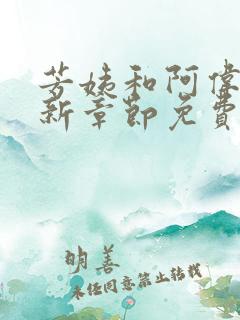 芳姨和阿偉
新章節免費
明善
未经同意禁止转载